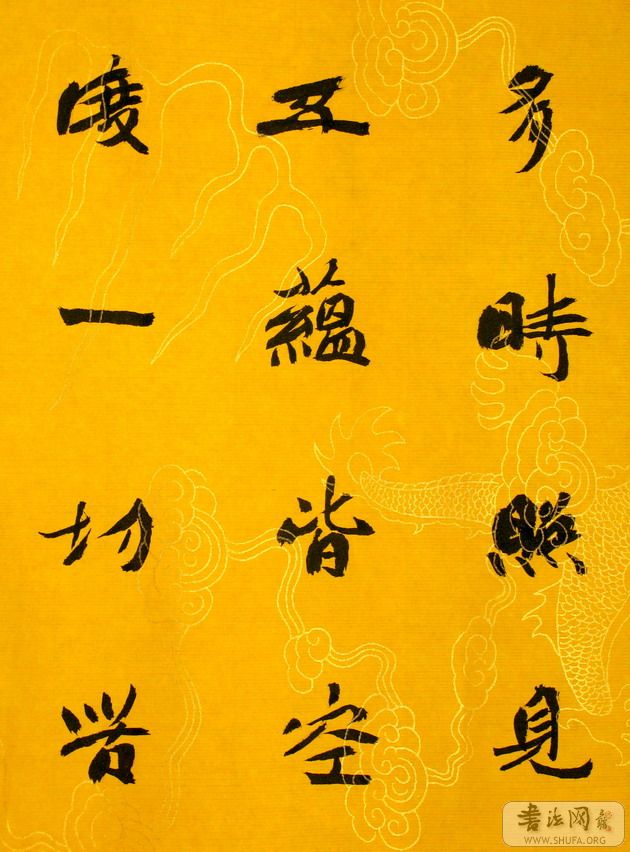 多時照見
五蘊皆空
度一切苦
書法网
WWW.SHUFA.ORG